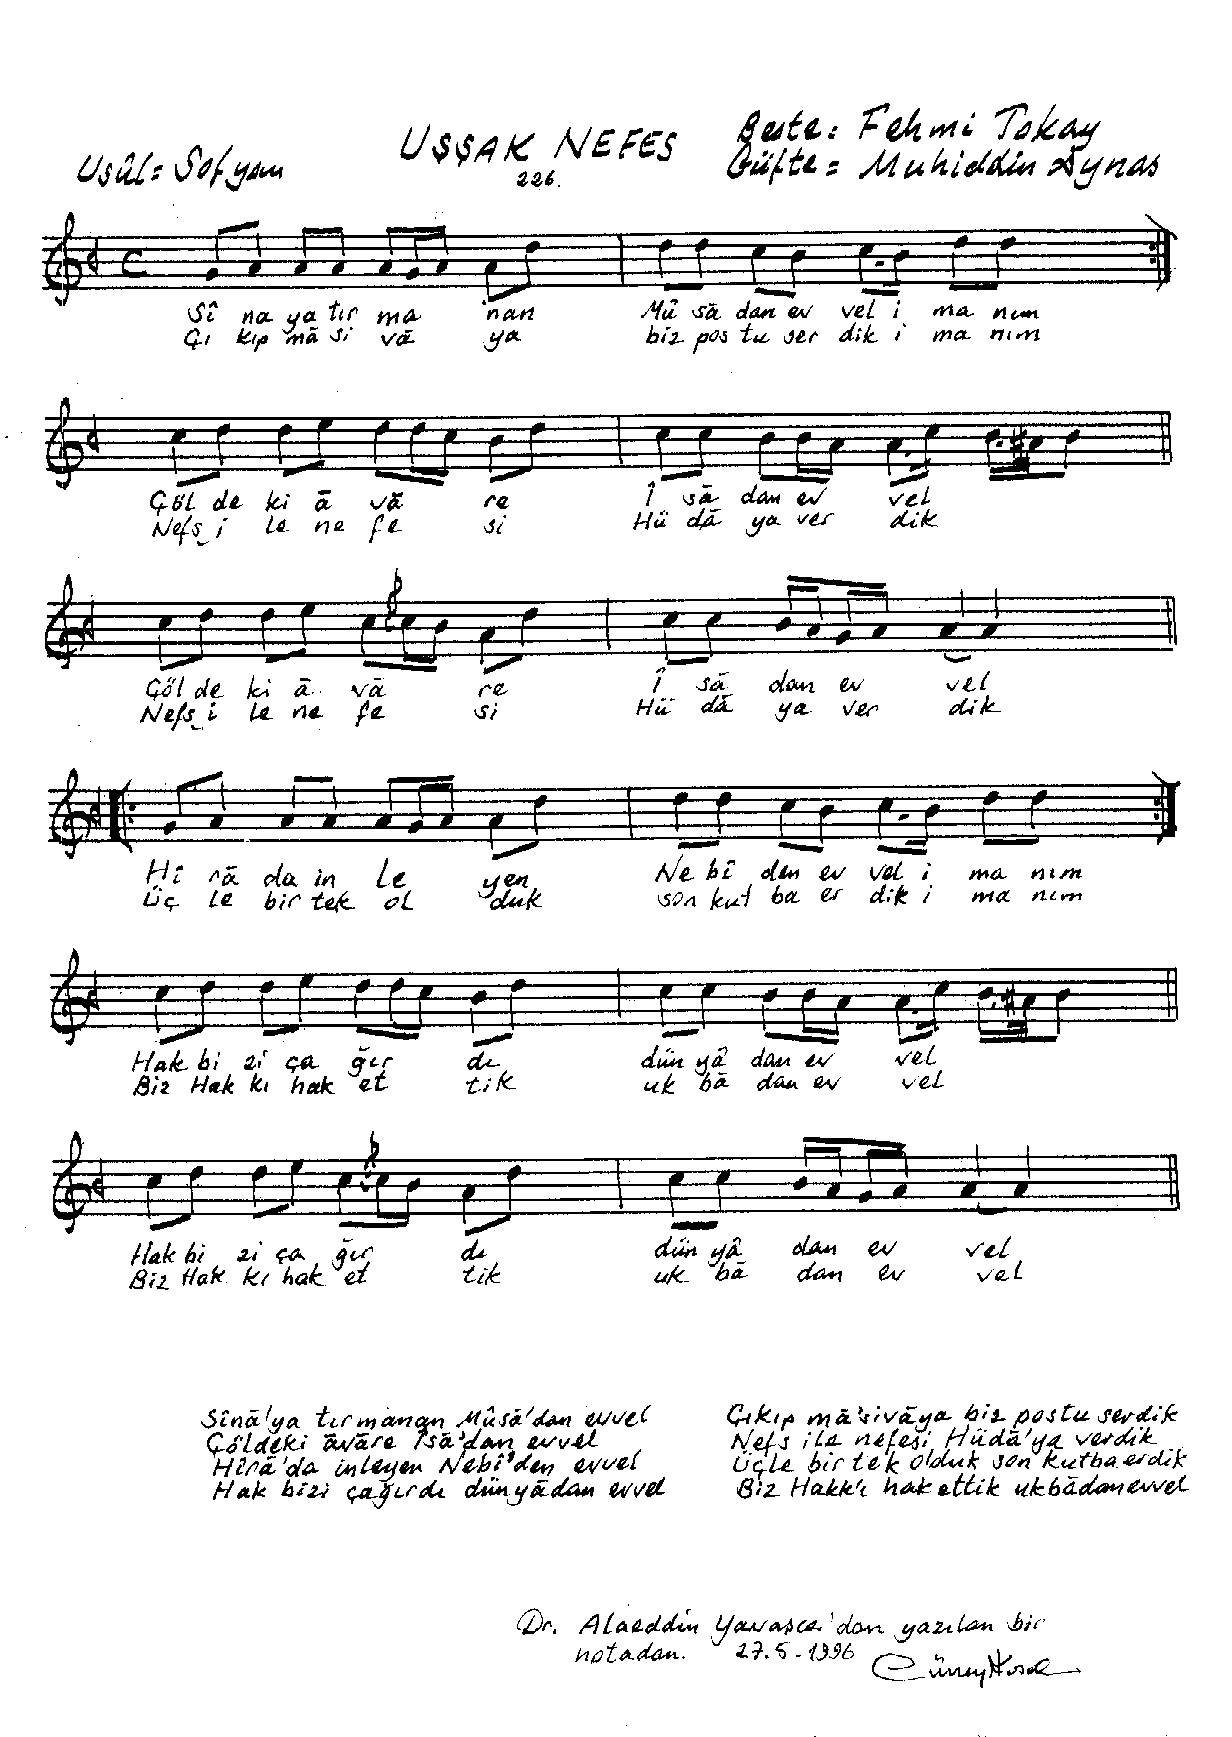 Usûl = Sofyan
UŞŞAK NEFES
226.
Beste: Fehmi Tokay
Güfte = Muhiddin Aynas
Sî na ya tır ma nan Mû sâ dan ev vel i ma nım
Çı kıp mâ si vâ ya biz pos tu ser dik i ma nım
Çöl de ki â vâ re Î sâ dan ev vel
Nefs i le ne fe si Hü dâ ya ver dik
Çöl de ki â vâ re Î sâ dan ev vel
Nefs i le ne fe si Hü dâ ya ver dik
Hî râ da in le yen Ne bî den ev vel i ma nım
Üç le bir tek ol duk son kut ba er dik i ma nım
Hak bi zi ça ğır dı dün yâ dan ev vel
Biz Hak kı hak et tik uk bâ dan ev vel
Hak bi zi ça ğır dı dün yâ dan ev vel
Biz Hak kı hak et tik uk bâ dan ev vel
Sînâ'ya tırmanan Mûsâ'dan evvel
Çöldeki âvâre Îsâ'dan evvel
Hîrâ'da inleyen Nebî'den evvel
Hak bizi çağırdı dünyâdan evvel
Çıkıp mâ'sivâya biz postu serdik
Nefs ile nefesi Hüdâ'ya verdik
Üçle bir tek olduk son kutba erdik
Biz Hakk'ı hak ettik ukbâdan evvel
Dr. Alaeddin Yavaşca'dan yazılan bir
notadan. 27.5.1996